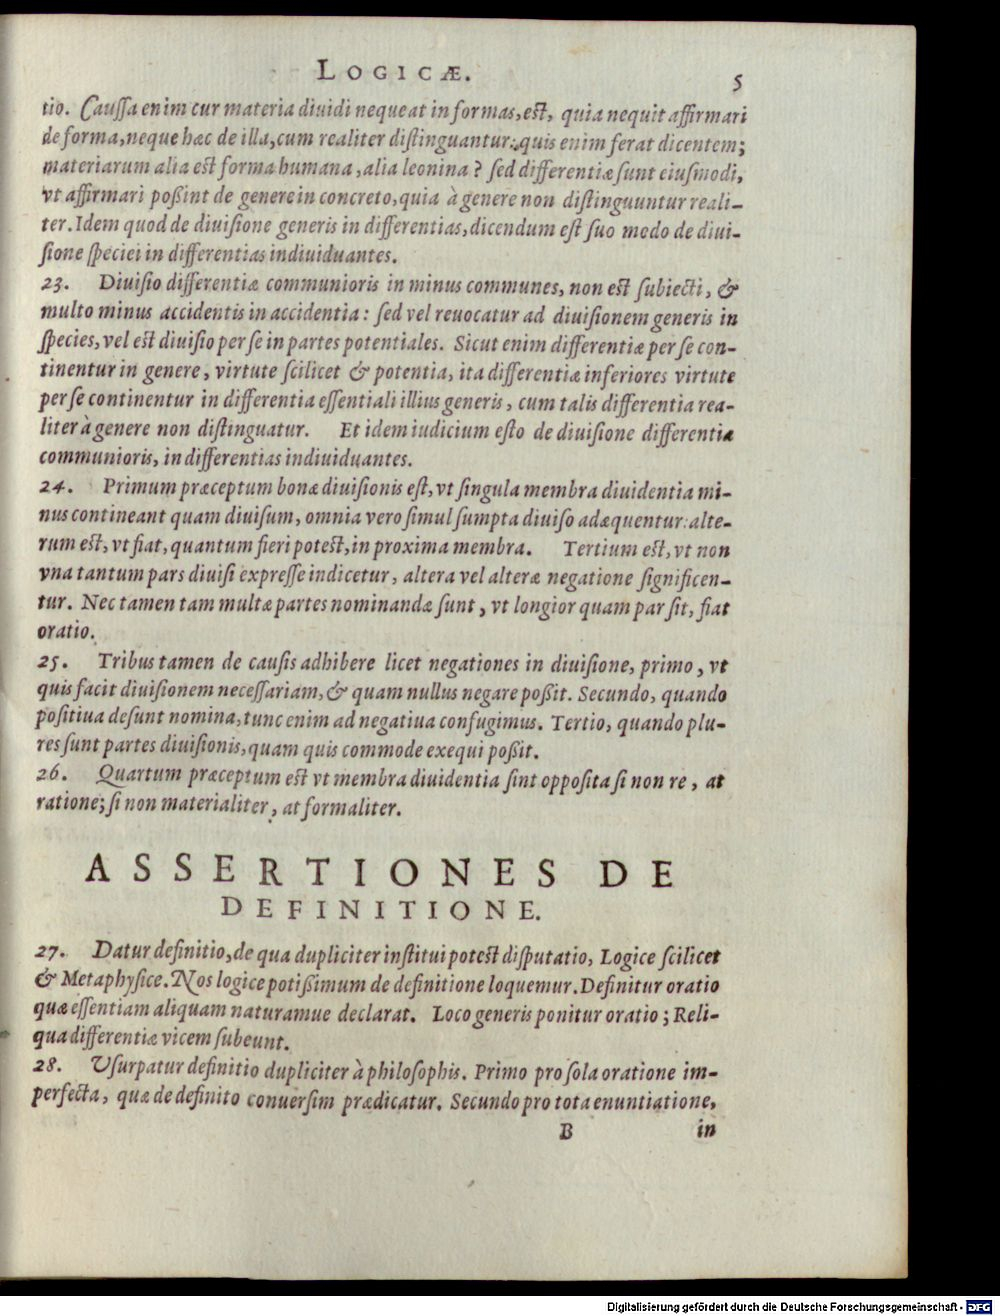 LOGICÆ. 5
tio. Caussa enim cur materia diuidi nequeat in formas, est, quia nequit affirmari
de forma, neque hæc de illa, cum realiter distinguantur: quis enim ferat dicentem;
materiarum alia est forma humana, alia leonina? sed differentiæ sunt eiusmodi,
vt affirmari poßint de genere in concreto, quia à genere non distinguuntur reali-
ter. Idem quod de diuisione generis in differentias, dicendum est suo modo de diui-
sione speciei in differentias indiuiduantes.
23. Diuisio differentiæ communioris in minus communes, non est subiecti, &
multo minus accidentis in accidentia: sed vel reuocatur ad diuisionem generis in
species, vel est diuisio per se in partes potentiales. Sicut enim differentiæ per se con-
tinentur in genere, virtute scilicet & potentia, ita differentiæ inferiores virtute
per se continentur in differentia essentiali illius generis, cum talis differentia rea-
liter à genere non distinguatur. Et idem iudicium esto de diuisione differentiæ
communioris, in differentias indiuiduantes.
24. Primum præceptum bonæ diuisionis est, vt singula membra diuidentia mi-
nus contineant quam diuisum, omnia vero simul sumpta diuiso adæquentur: alte-
rum est, vt fiat, quantum fieri potest, in proxima membra. Tertium est, vt non
vna tantum pars diuisi expresse indicetur, altera vel alteræ negatione significen-
tur. Nec tamen tam multæ partes nominandæ sunt, vt longior quam par sit, fiat
oratio.
25. Tribus tamen de causis adhibere licet negationes in diuisione, primo, vt
quis facit diuisionem necessariam, & quam nullus negare poßit. Secundo, quando
positiua desunt nomina, tunc enim ad negatiua confugimus. Tertio, quando plu-
res sunt partes diuisionis, quam quis commode exequi poßit.
26. Quartum præceptum est vt membra diuidentia sint opposita si non re, at
ratione; si non materialiter, at formaliter.
ASSERTIONES DE
DEFINITIONE.
27. Datur definitio, de qua dupliciter institui potest disputatio, Logice scilicet
& Metaphysice. Nos logice potißimum de definitione loquemur. Definitur oratio
quæ essentiam aliquam naturamue declarat. Loco generis ponitur oratio; Reli-
qua differentiæ vicem subeunt.
28. Vsurpatur definitio dupliciter à philosophis. Primo pro sola oratione im-
perfecta, quæ de definito conuersim prædicatur. Secundo pro tota enuntiatione,
B in
Digitalisierung gefördert durch die Deutsche Forschungsgemeinschaft - DFG